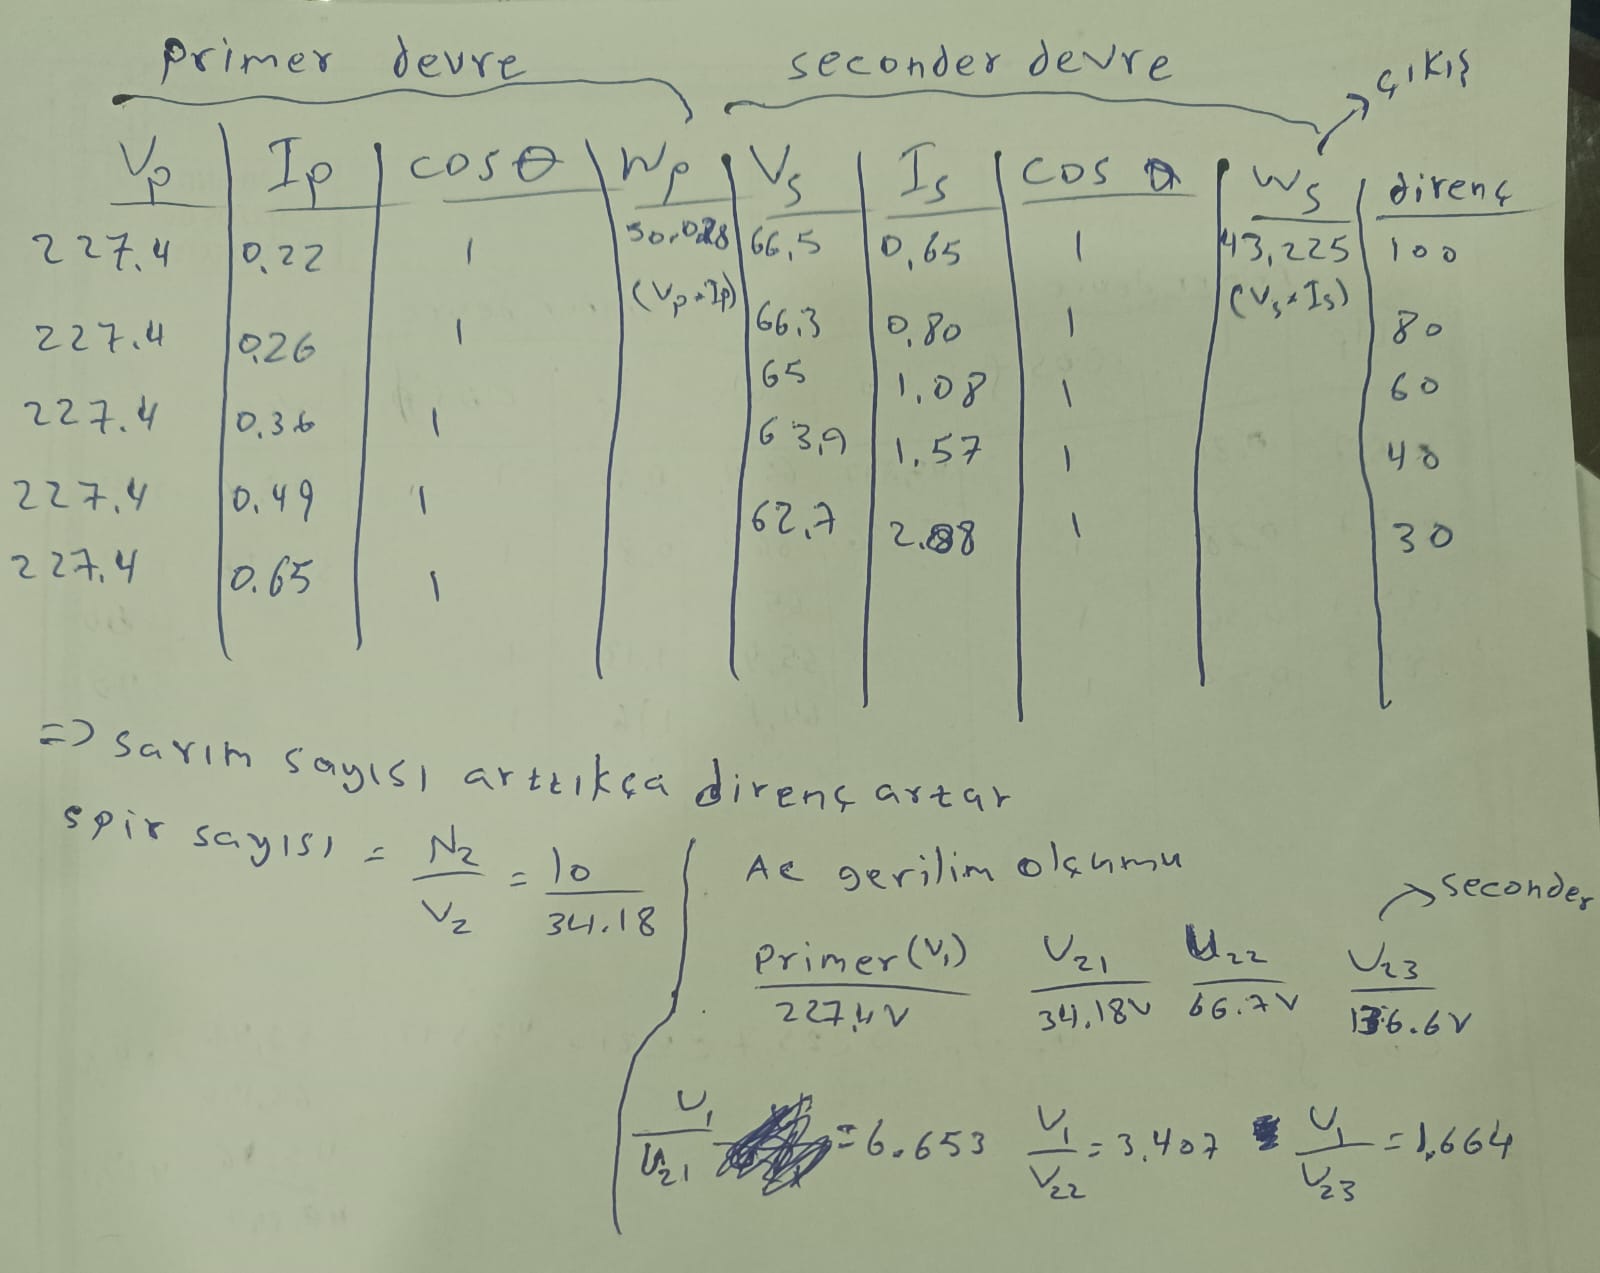 primer devre seconder devre çıkış
Vp Ip cosθ Wp Vs Is cos θ Ws direnç
227,4 0,22 1 50,028 66,5 0,65 1 43,225 100
(Vp*Ip) (Vs*Is)
227.4 0,26 1 66,3 0,80 1 80
227.4 0,36 1 65 1,08 1 60
227,4 0,49 1 63,9 1,57 1 40
227,4 0.65 1 62,7 2.08 1 30
=> sarım sayısı arttıkça direnç artar
spir sayısı = N2/V2 = 10/34.18
AC gerilim ölçümü
seconder
Primer(V1) V21 U22 V23
227,4V 34,18V 66.7V 136.6V
V1/U21 = 6.653 V1/V22 = 3,407 V1/V23 = 1,664